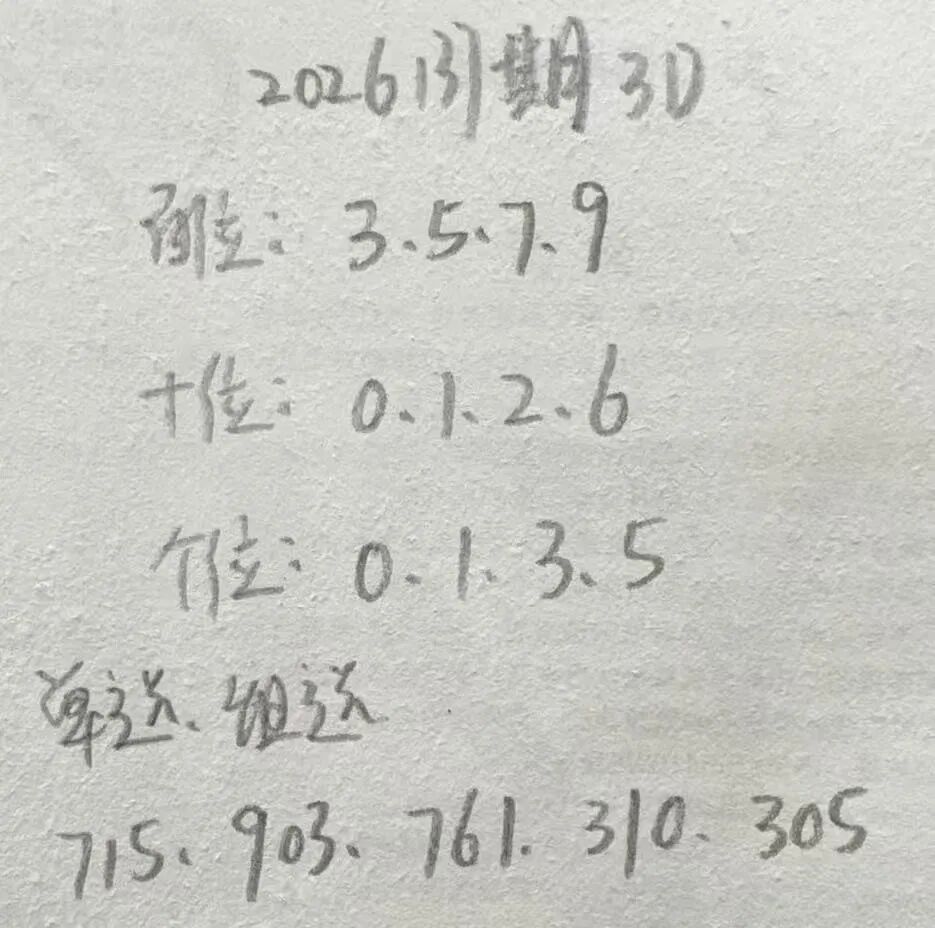 2026137期 3D
百位: 3.5.7.9
十位: 0.1.2.6
个位: 0.1.3.5
单选、组选
715. 903. 761. 310. 305